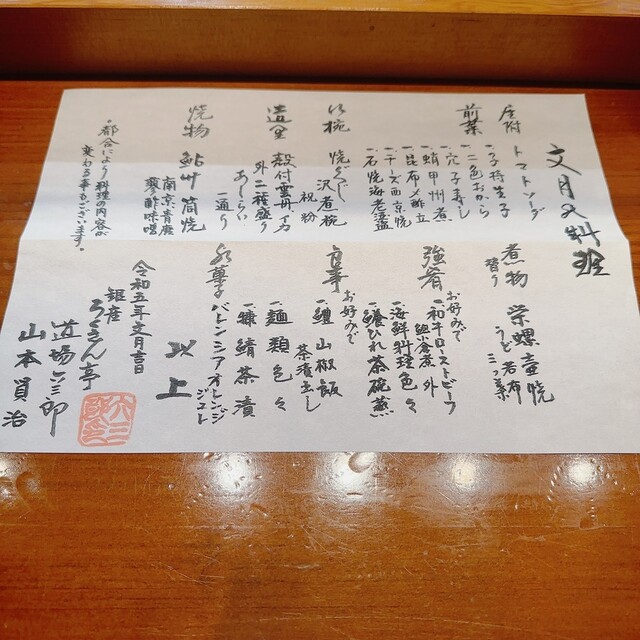 文月の料理
座附 トマトソーダ
前菜
・子持昆布
・二色おから
・穴子寿し
・蛸甲州煮
・昆布〆酢立
・チーズ西京焼
・石焼海老湯盛
沢煮椀
祝粉
造里 殻付雲丹
外二種盛り
あしらい
一通り
焼物 鮎 筒焼
南京青唐
蓼酢味噌
・都合により料理の内容が
変わる事もございます。
煮物
替り
栄螺壷焼
うど 若布
三つ葉
強肴
お好みで
・和牛ローストビーフ
・海鮮料理色々
・鱶ひれ茶碗蒸
食事
お好みで
・鱧山椒飯
茶漬出し
・麺類色々
・鯖茶漬
水菓子
バレンシアオレンジ
ジュレ
以上
令和五年文月吉日
銀座
ろくさん亭
道場六三郎
山本員治